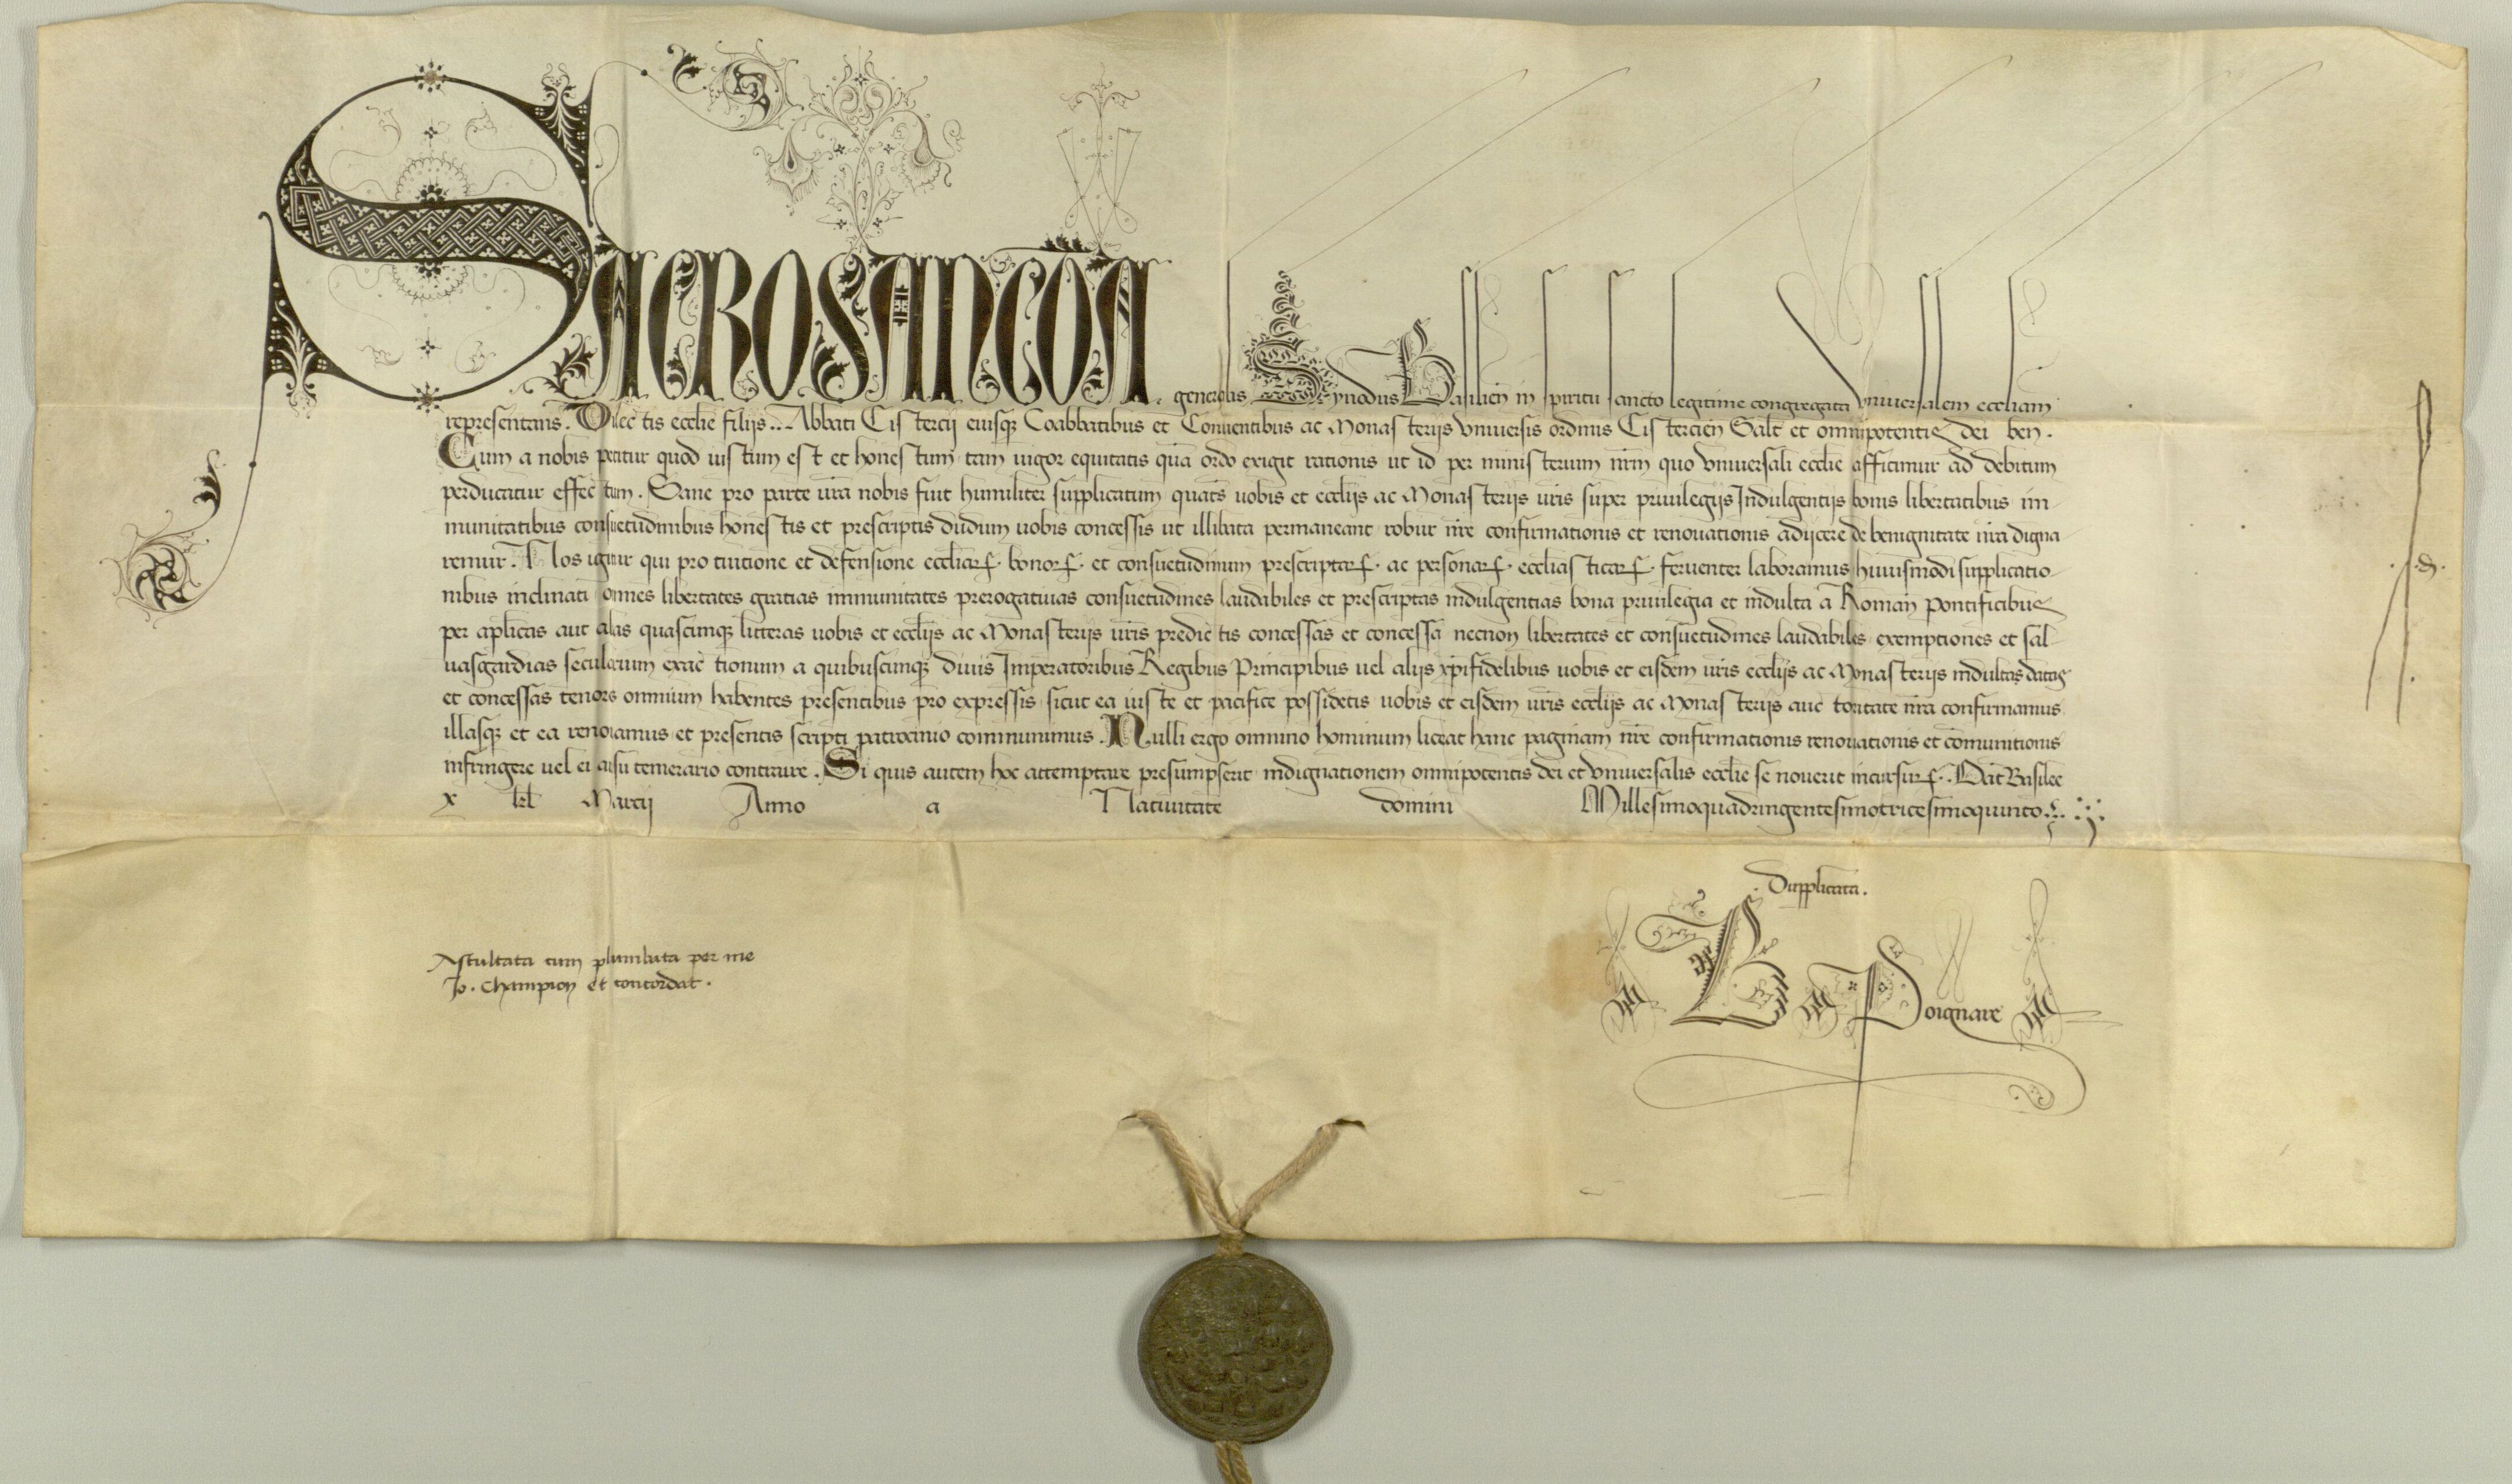 SACROSANCTA. generalis Synodus Basilien in spiritu sancto legitime congregata vniuersalem eccliam
representans. Dilectis ecclie filijs... Abbati Cistercij eiusqz Coabbatibus et Conuentibus ac Monasterijs vniuersis ordinis Cistercien Salt et omnipotentis dei ben.
Cum a nobis petitur quod iustum est et honestum tam uigor equitatis qua ordo exigit rationis ut id per ministerium nrm quo vniuersali ecclie afficimur ad debitum
perducatur effectum. Sane pro parte vra nobis fuit humiliter supplicatum quats uobis et ecclijs ac Monasterijs vris super priuilegijs Indulgentijs bonis libertatibus im
munitatibus consuetudinibus honestis et prescriptis dudum uobis concessis ut illibata permaneant robur nre confirmationis et renouationis adijcere de benignitate nra digna
remur. Nos igitur qui pro tuitione et defensione eccliarꝝ. bonorꝝ. et consuetudinum prescriptarꝝ. ac personarꝝ. ecclesiasticarꝝ. feruenter laboramus huiusmodi supplicatio
nibus inclinati omnes libertates gratias immunitates prerogatiuas consuetudines laudabiles et prescriptas indulgentias bona priuilegia et indulta a Roman pontificibus
per aplicas aut alias quascunqz litteras uobis et ecclijs ac Monasterijs vris predictis concessas et concessa necnon libertates et consuetudines laudabiles exemptiones et sal
uasgardias secularium exactionum a quibuscunqz diuis Imperatoribus Regibus Principibus uel alijs xpifidelibus uobis et eisdem vris ecclijs ac Monasterijs indultas datas
et concessas tenores omnium habentes presentibus pro expressis sicut ea iuste et pacifice possidetis uobis et eisdem vris ecclijs ac Monasterijs auctoritate nra confirmamus
illasqz et ea renouamus et presentis scripti patrocinio communimus. Nulli ergo omnino hominum liceat hanc paginam nre confirmationis renouationis et comunitionis
infringere uel ei ausu temerario contraire. Si quis autem hoc attemptare presumpserit indignationem omnipotentis dei et vniuersalis ecclie se nouerit incursurꝝ. Dat Basilee
x kl Marcij Anno a Natiuitate domini Millesimoquadringentesimotricesimoquinto
. Dupplicata.
Ascultata cum plumbata per me
Jo. Champion et concordat.
B Poignare